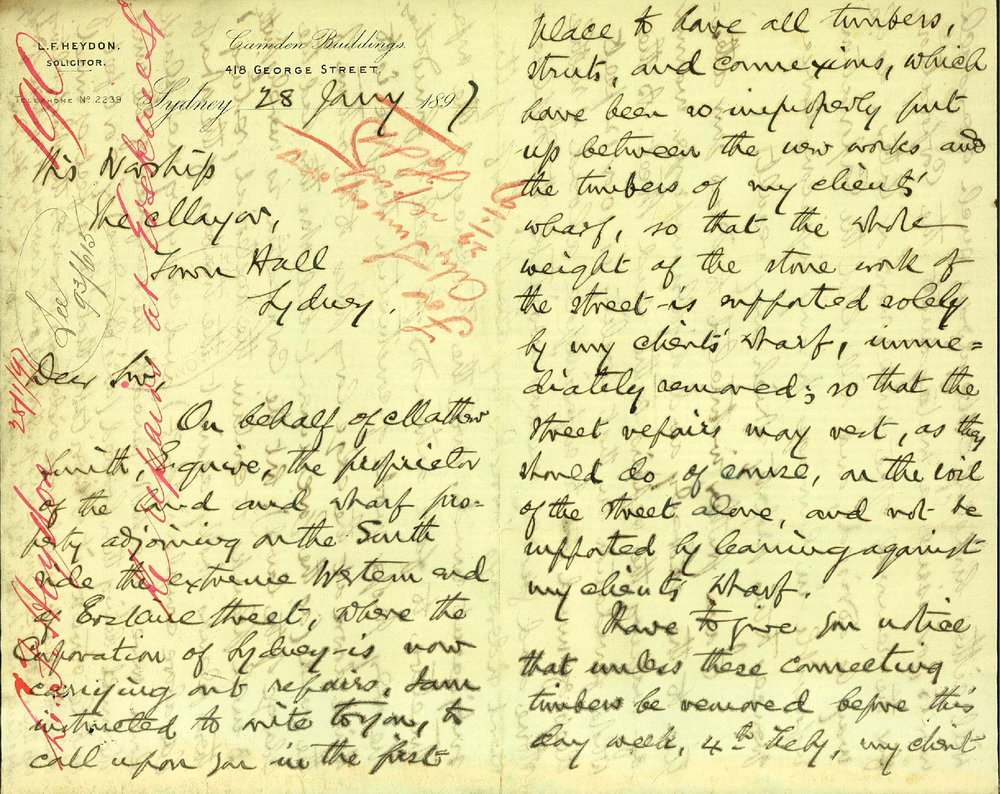 L.F. HEYDON.
SOLICITOR.
TELEPHONE Nº 2239
Camden Buildings.
418 GEORGE STREET.
Sydney 28 Jany 1897
190
His Worship
The Mayor,
Town Hall
Sydney.
See
93/615
Dear Sir,
On behalf of Mathew
Smith, Esquire, the proprietor
of the land and wharf pro=
perty adjoining on the South
side the extreme Western end
of Erskine Street, where the
Corporation of Sydney is now
carrying out repairs, I am
instructed to write to you, to
call upon you in the first
L. F. Heydon 28/1/97
re repairs at Erskine St
City Surveyor
29/1/97
place to have all timbers,
struts, and connexions, which
have been so improperly put
up between the new works and
the timbers of my clients'
wharf, so that the whole
weight of the stone work of
the street is supported solely
by my clients' wharf, imme=
diately removed; so that the
street repairs may rest, as they
should do of course, on the soil
of the street alone, and not be
supported by leaning against
my clients' wharf.
I have to give you notice
that unless these connecting
timbers be removed before this
day week, 4th Feby, my client